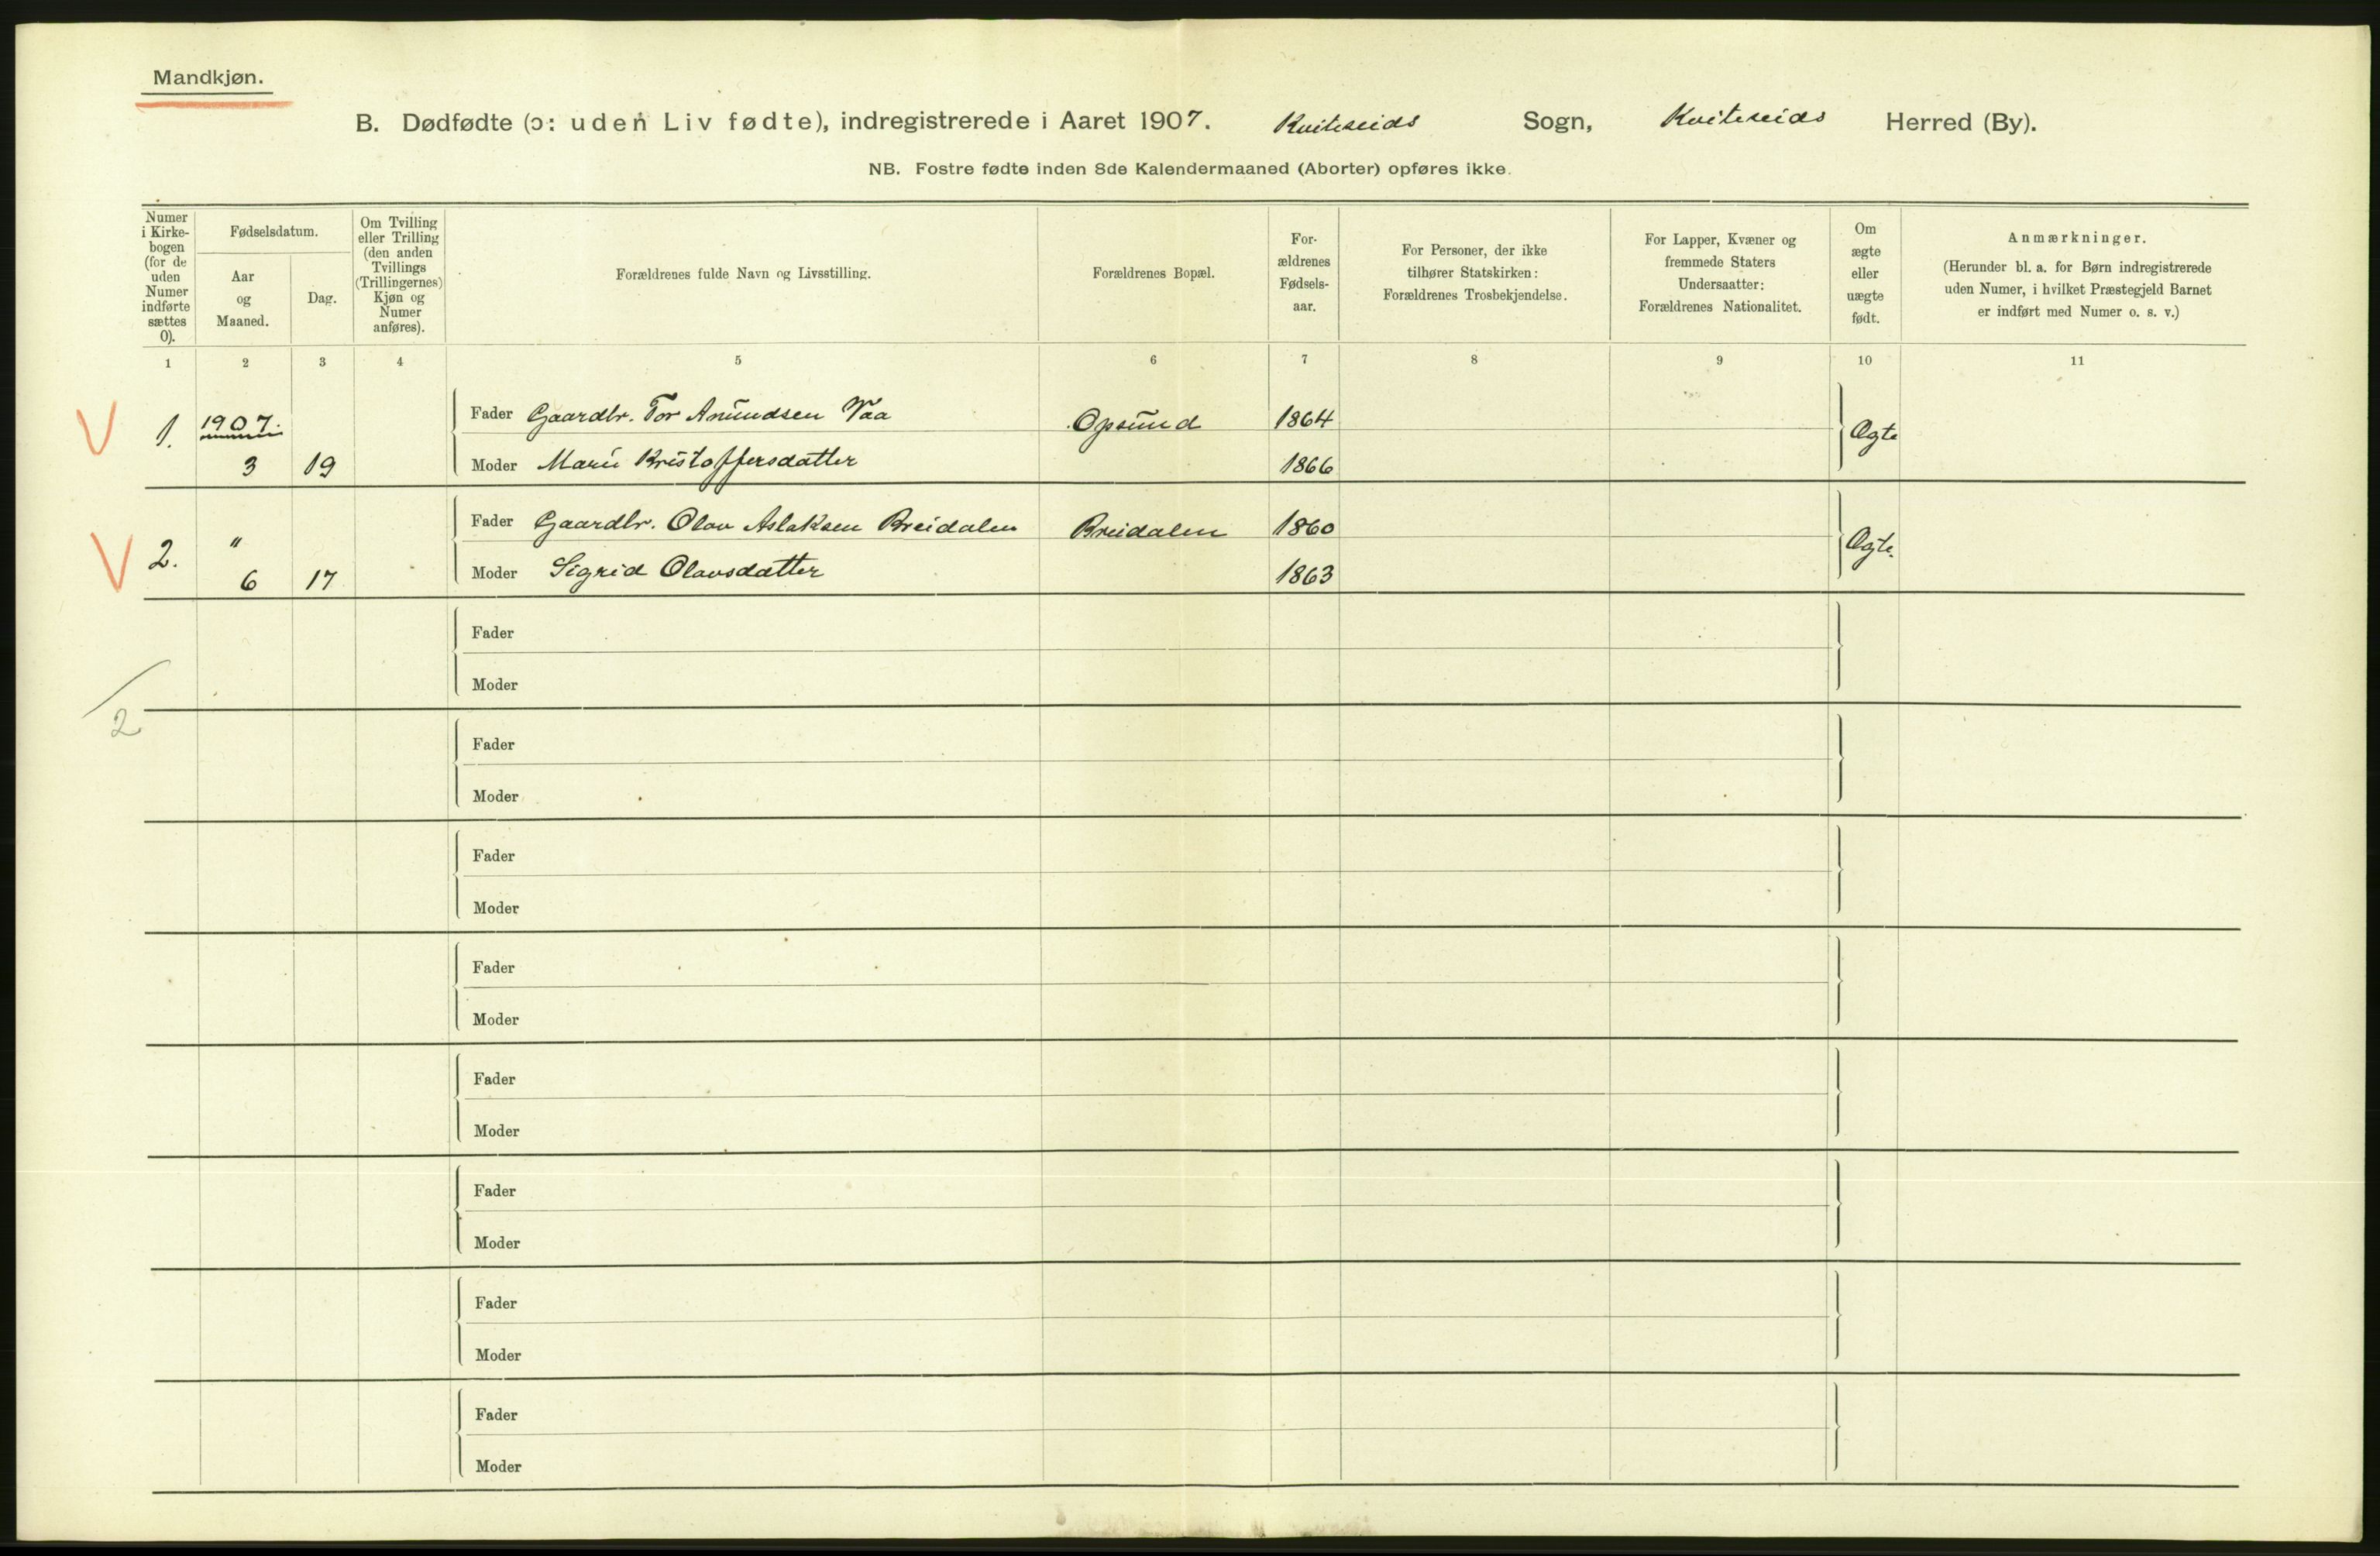 Mandkjøn.
B. Dødfødte (ɔ: uden Liv fødte), indregistrerede i Aaret 1907. Kviteseids Sogn, Kviteseids Herred (By).
NB. Fostre fødte inden 8de Kalendermaaned (Aborter) opføres ikke.
Numer
i Kirke-
bogen
(for de
uden
Numer
indførte
sættes
0).
Fødselsdatum.
Aar
og
Maaned.
Dag.
Om Tvilling
eller Trilling
(den anden
Tvillings
(Trillingernes)
Kjøn og
Numer
anføres).
Forældrenes fulde Navn og Livsstilling.
Forældrenes Bopæl.
For-
ældrenes
Fødsels-
aar.
For Personer, der ikke
tilhører Statskirken:
Forældrenes Trosbekjendelse.
For Lapper, Kvæner og
fremmede Staters
Undersaatter:
Forældrenes Nationalitet.
Om
ægte
eller
uægte
født.
Anmærkninger.
(Herunder bl. a. for Børn indregistrerede
uden Numer, i hvilket Præstegjeld Barnet
er indført med Numer o. s. v.)
1 2 3 4 5 6 7 8 9 10 11
V 1. 1907. Fader Gaardbr. Tor Anundsen Vaa Opsund 1864 Ægte
3 19 Moder Marie Kristoffersdatter 1866
V 2. " Fader Gaardbr. Olav Aslaksen Breidalen Breidalen 1860 Ægte.
6 17 Moder Sigrid Olavsdatter 1863
Fader
Moder
2
Fader
Moder
Fader
Moder
Fader
Moder
Fader
Moder
Fader
Moder
Fader
Moder
Fader
Moder